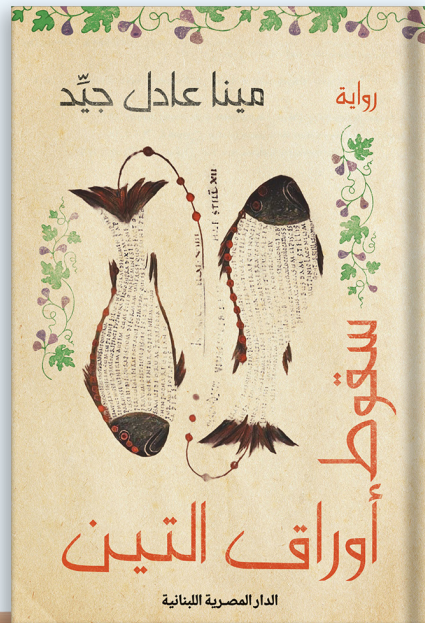 رواية
مينا عادل جيِّد
سقوط
أوراق التين
الدار المصرية اللبنانية